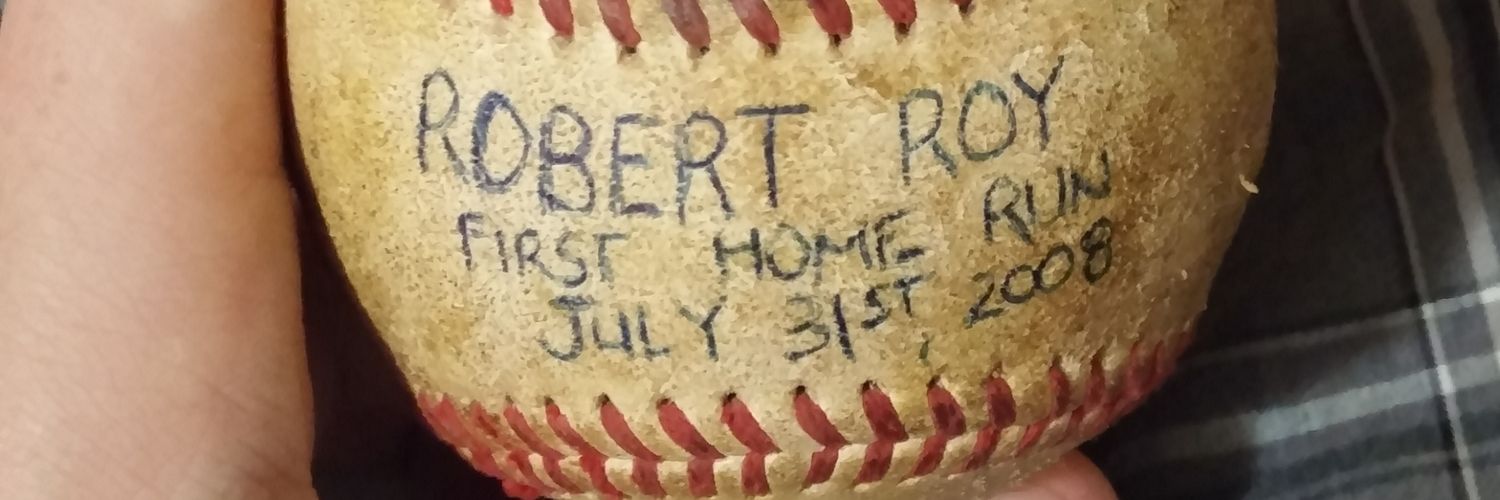 ROBERT ROY
FIRST HOME RUN
JULY 31ST, 2008